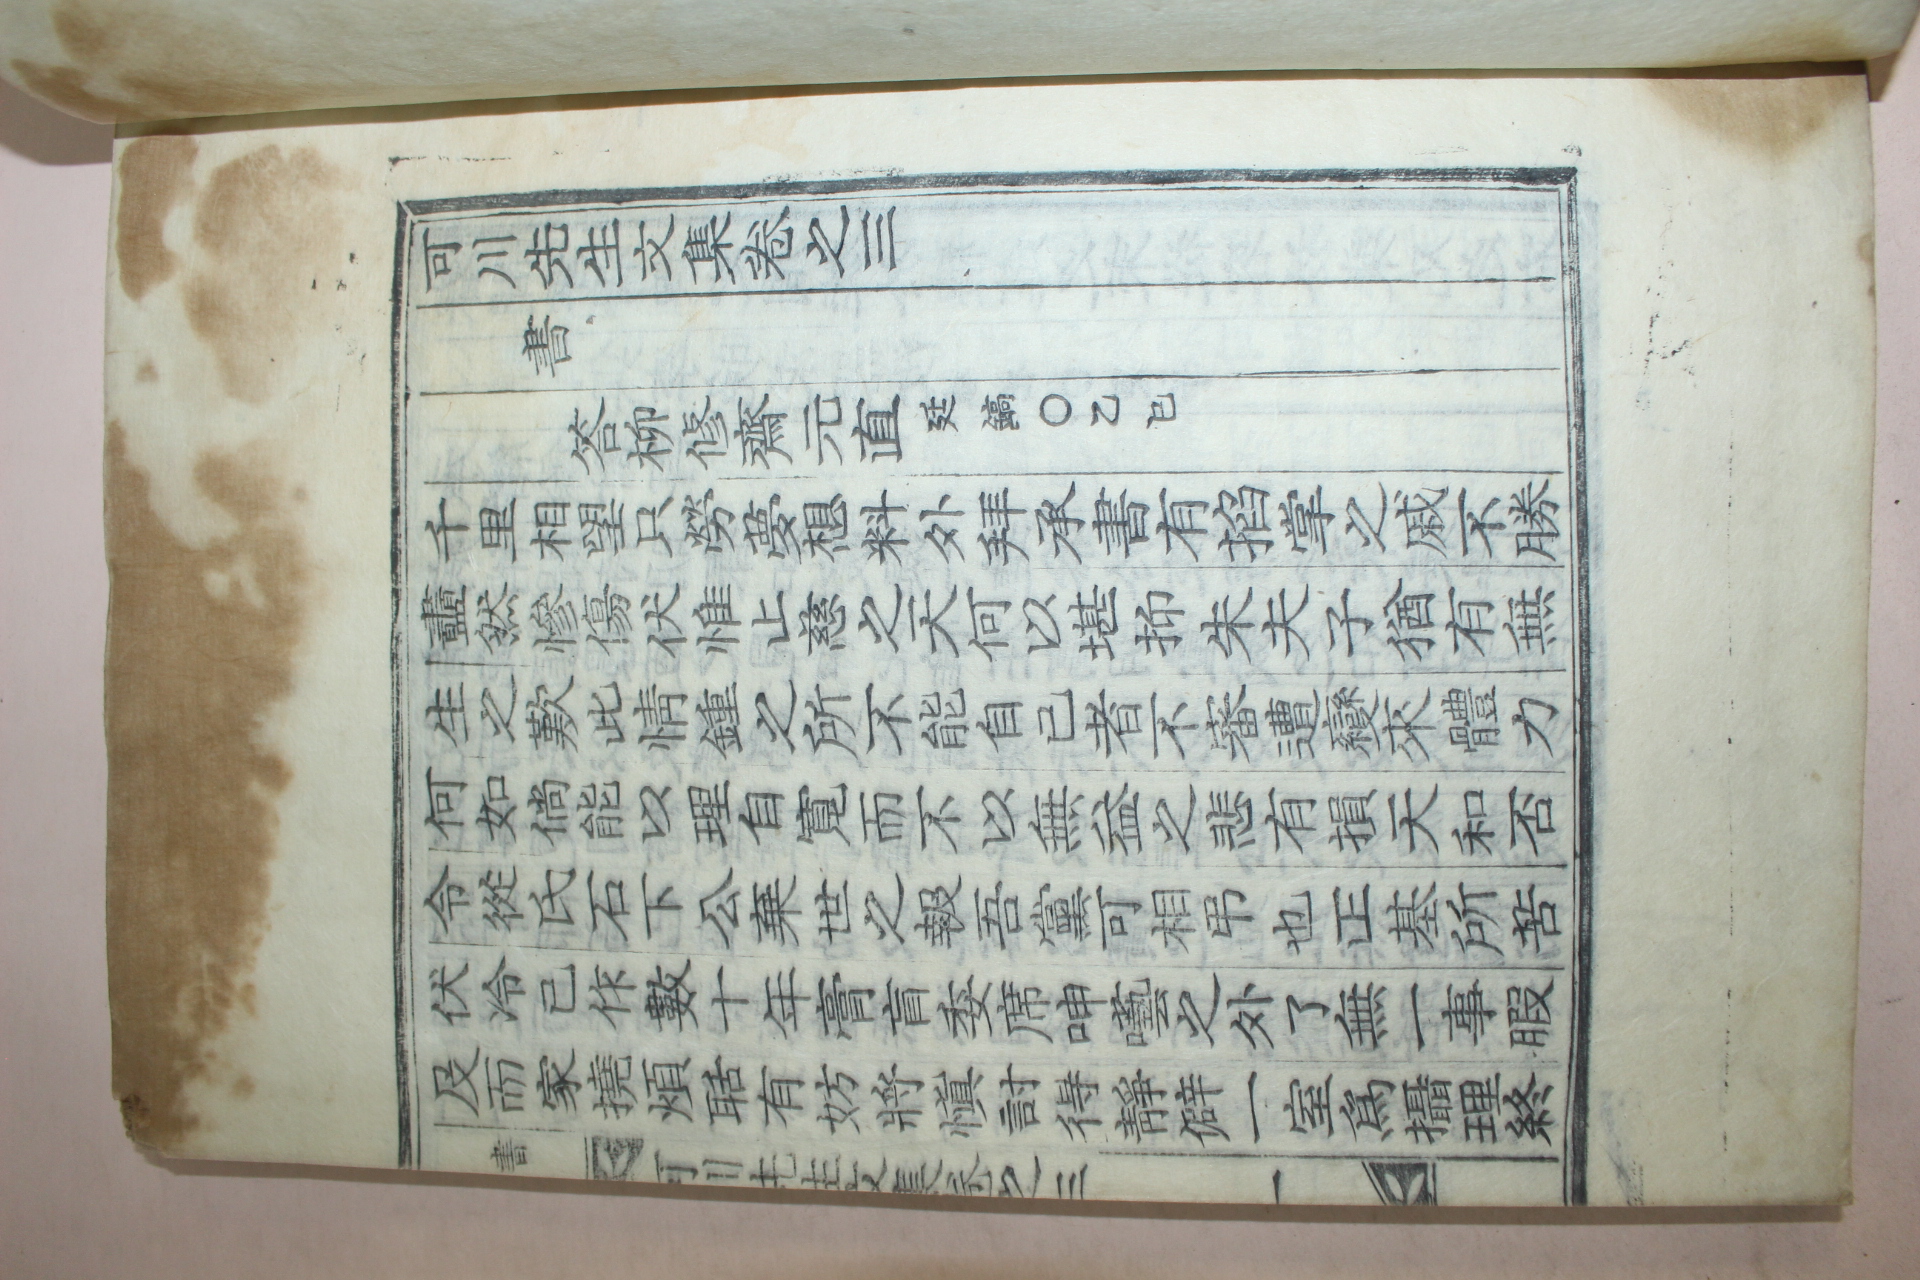 可川先生文集卷之三
書
答柳修齋元直 廷鎬○乙巳
千里相望只勞夢想料外拜承書有掐掌之戚不勝
衋然慘傷伏惟止慈之天何以堪抑朱夫子猶有無
生之歎此情鍾之所不能自已者不審遭變來體力
何如尙能以理自寬而不以無益之悲有損天和否
令從氏石下公棄世之報吾黨可相吊也正基所苦
伏冷已作數十年膏肓委席呻囈之外了無一事暇
及而家撓煩聒有妨將愼討得靜僻一室爲攝理終
書 可川先生文集卷之三 一